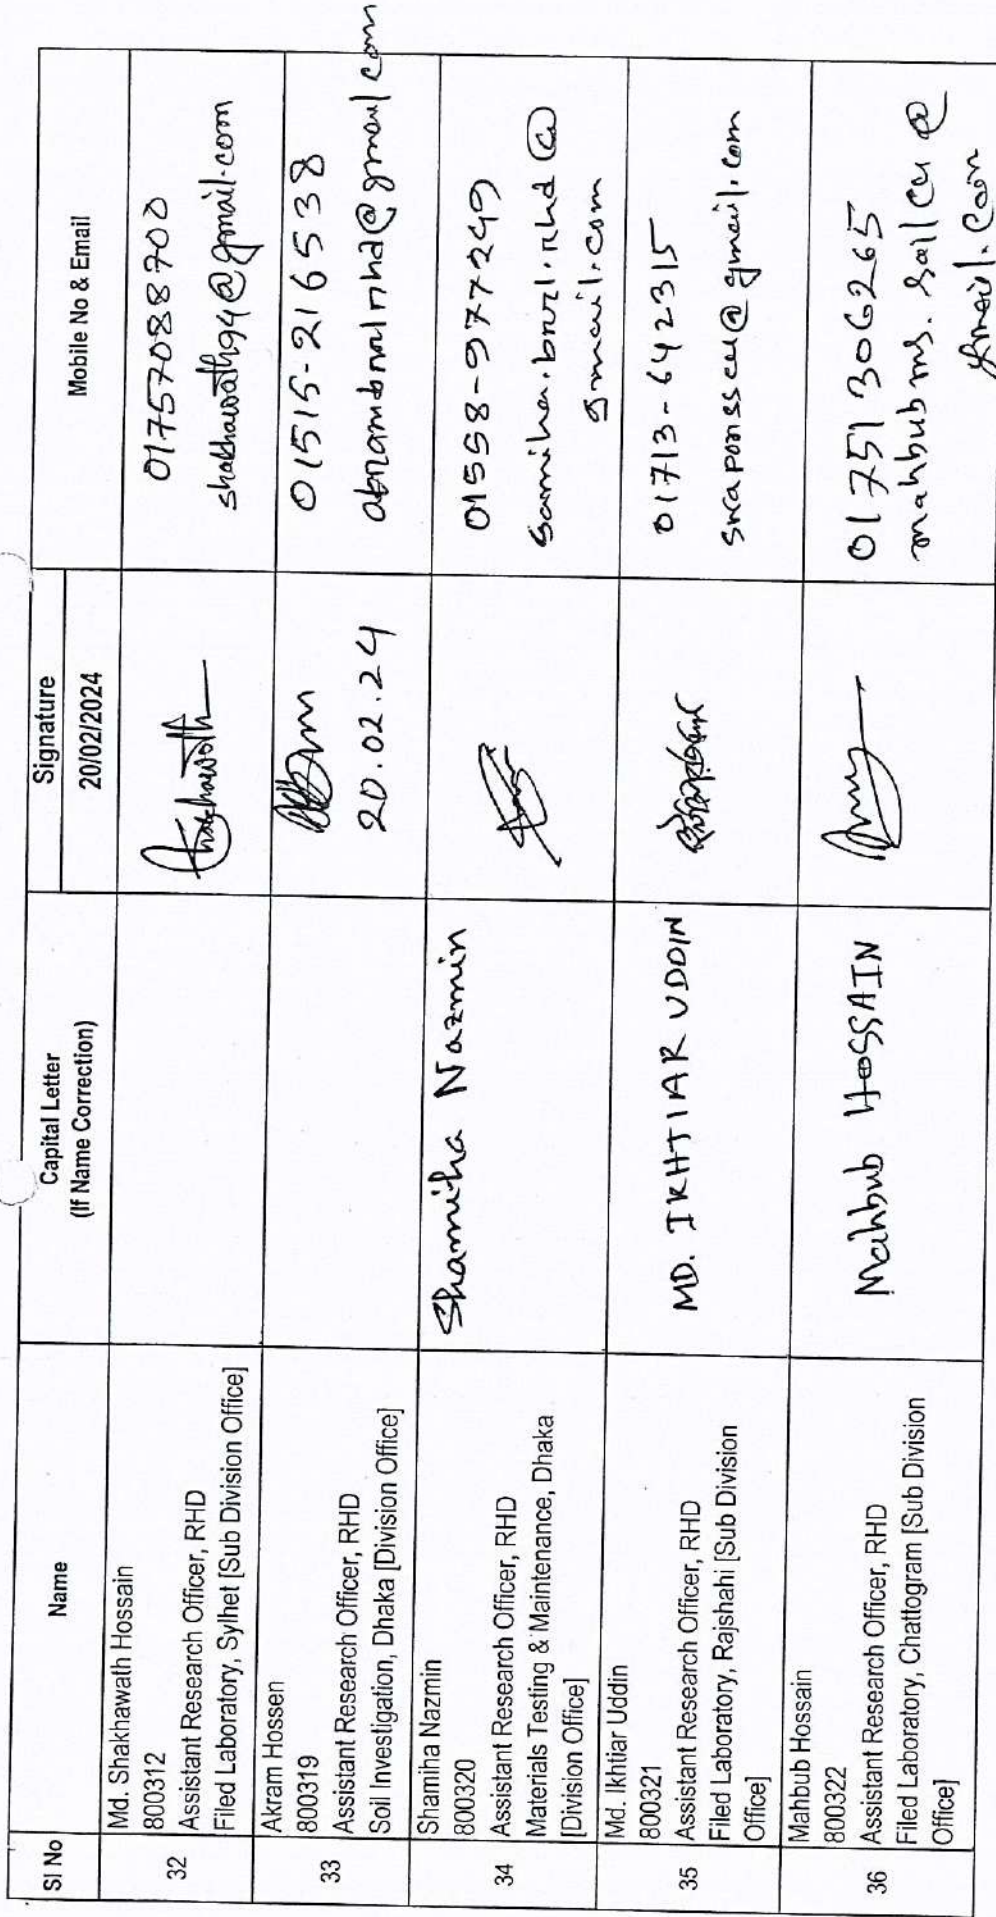 Sl No
Name
Capital Letter
(If Name Correction)
Signature
20/02/2024
Mobile No & Email
32
Md. Shakhawath Hossain
800312
Assistant Research Officer, RHD
Filed Laboratory, Sylhet [Sub Division Office]
Shakhawath
01757088700
shakhawath94@gmail.com
33
Akram Hossen
800319
Assistant Research Officer, RHD
Soil Investigation, Dhaka [Division Office]
20.02.24
01515-216538
34
Shamiha Nazmin
800320
Assistant Research Officer, RHD
Materials Testing & Maintenance, Dhaka
[Division Office]
Shamiha Nazmin
01558-977249
samiha.brrl.rhd@
gmail.com
35
Md. Ikhtiar Uddin
800321
Assistant Research Officer, RHD
Filed Laboratory, Rajshahi [Sub Division
Office]
MD. IKHTIAR UDDIN
01713-642315
36
Mahbub Hossain
800322
Assistant Research Officer, RHD
Filed Laboratory, Chattogram [Sub Division
Office]
Mahbub HOSSAIN
01751306265
gmail.com